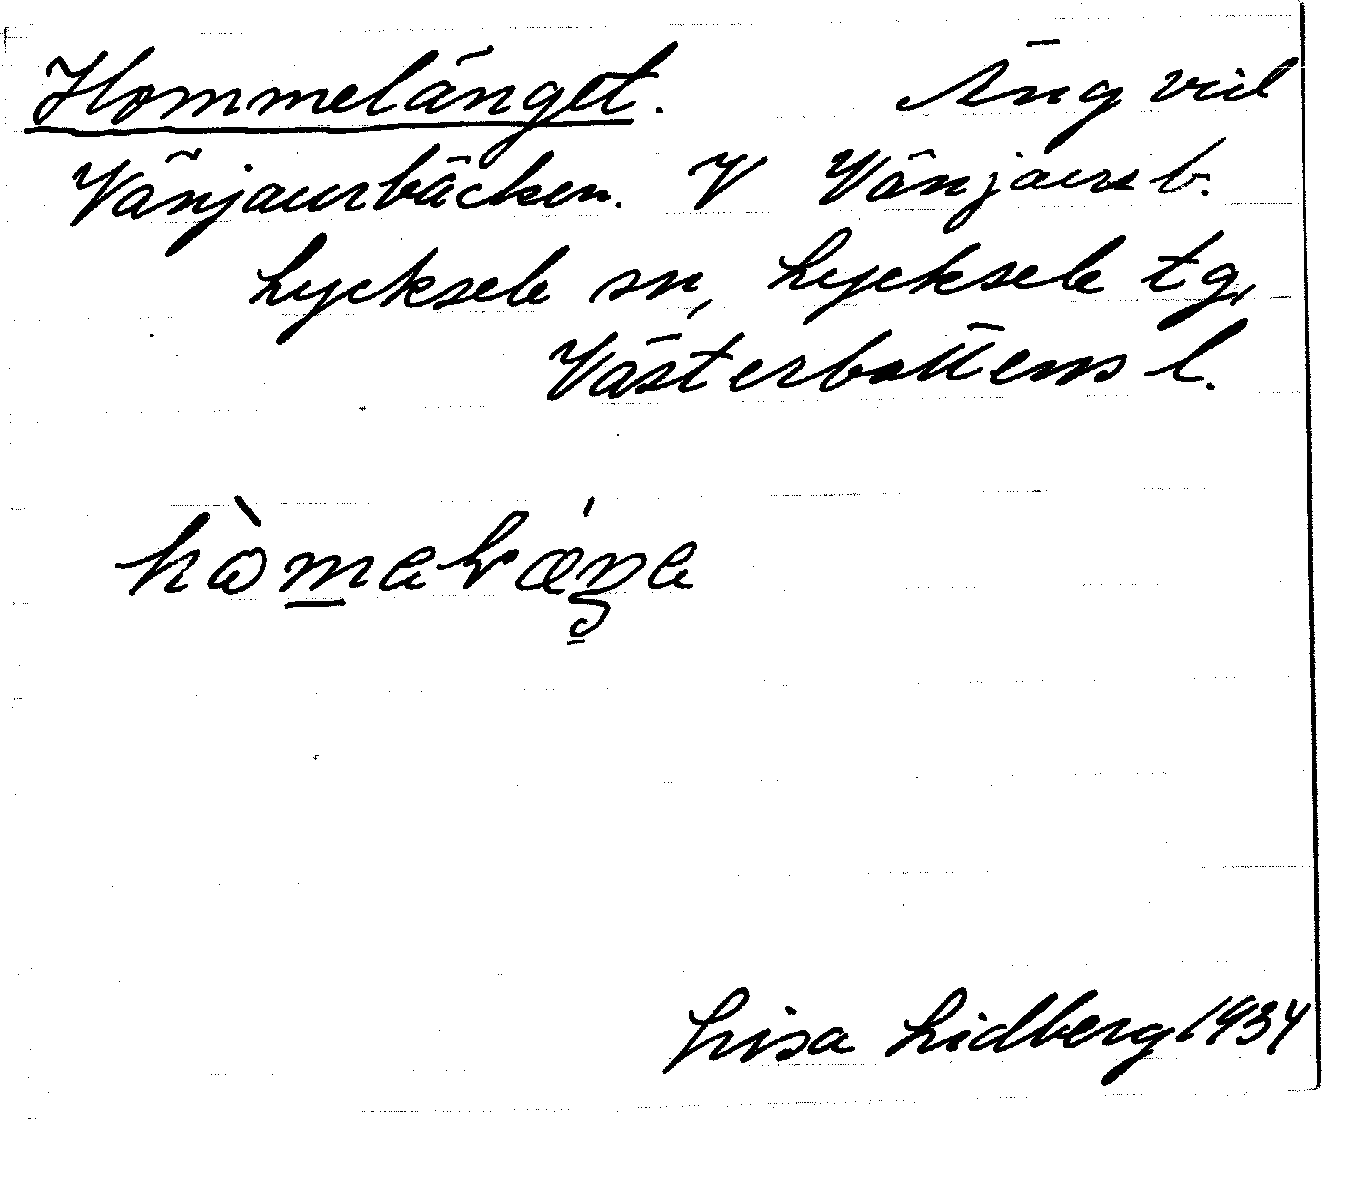 Hommelänget. Äng vid
Vänjaurbäcken. V Vänjaurb.
Lycksele sn, Lycksele tg,
Västerbottens l.
Lisa Lidberg 1934